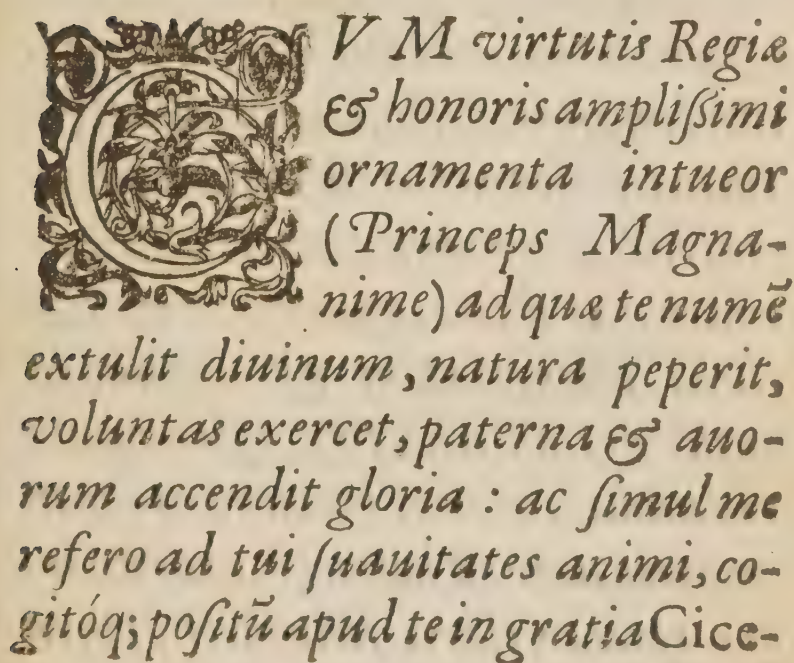 CVM virtutis Regiæ
& honoris ampliſsimi
ornamenta intueor
(Princeps Magna-
nime) ad quæ te numē
extulit diuinum, natura peperit,
voluntas exercet, paterna & auo-
rum accendit gloria : ac ſimul me
refero ad tui ſuauitates animi, co-
gitóq; poſitū apud te in gratia Cice-